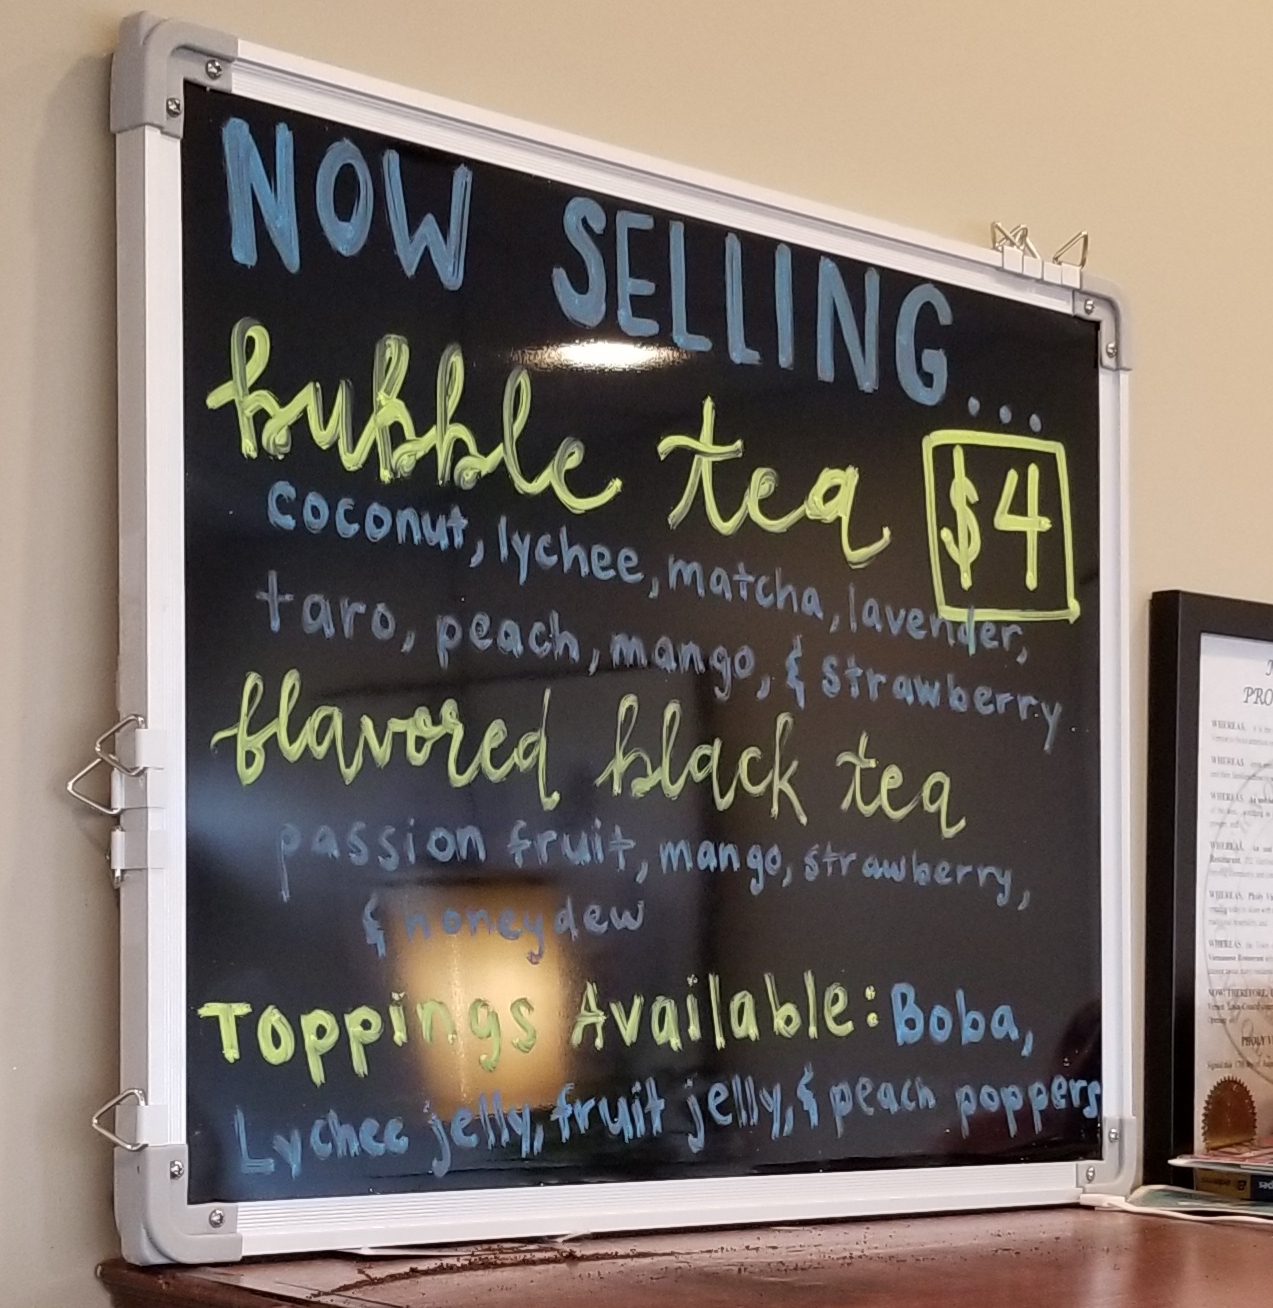 NOW SELLING...
bubble tea $4
coconut, lychee, matcha, lavender,
taro, peach, mango, & strawberry
flavored black tea
passion fruit, mango, strawberry,
& honeydew
Toppings Available: Boba,
Lychee jelly, fruit jelly, & peach poppers
PRO
WHEREAS,
WHEREAS,
WHEREAS,
WHEREAS,
WHEREAS,
WHEREAS,
NOW, THEREFORE,